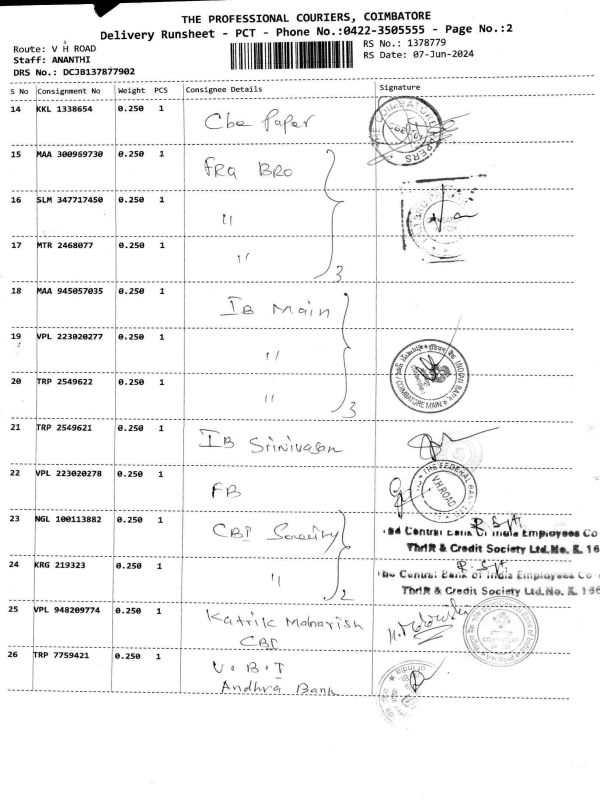 THE PROFESSIONAL COURIERS, COIMBATORE
Delivery Runsheet - PCT - Phone No.:0422-3505555 - Page No.:2
Route: V H ROAD
Staff: ANANTHI
DRS No.: DCJB137877902
RS No.: 1378779
RS Date: 07-Jun-2024
S No Consignment No Weight PCS Consignee Details Signature
14 KKL 1338654 0.250 1 Cbe Paper
15 MAA 300969730 0.250 1 FRA BRO
16 SLM 347717450 0.250 1 "
17 MTR 2468077 0.250 1 "
3
18 MAA 945057035 0.250 1 IB Main
19 VPL 223020277 0.250 1 "
20 TRP 2549622 0.250 1 "
3
INDIAN BANK
COIMBATORE MAIN
21 TRP 2549621 0.250 1 IB Srinivasan
22 VPL 223020278 0.250 1 FB
THE FEDERAL BANK
V.H.ROAD
23 NGL 100113882 0.250 1 CBI Society
Central Bank Of India Employees Co
Thrift & Credit Society Ltd.No. K. 16
24 KRG 219323 0.250 1 "
2
Central Bank of India Employees Co
Thrift & Credit Society Ltd.No. K. 166
25 VPL 948209774 0.250 1 Katrik Maharish
CBI
26 TRP 7759421 0.250 1 U.B.I
Andhra Bank